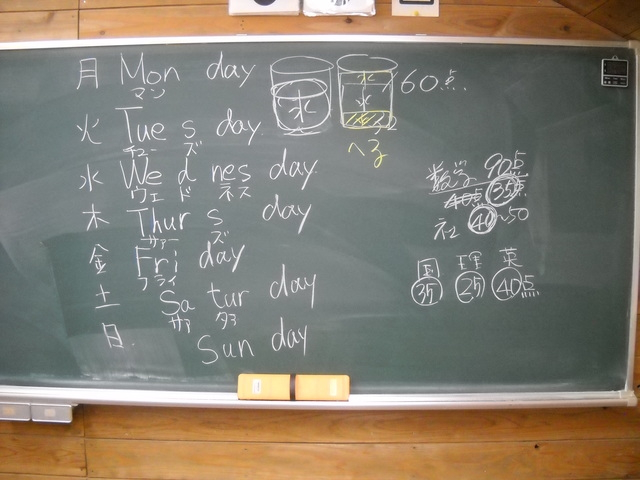 月 Mon day
マン
火 Tue s day
チュー ズ
水 We d nes day
ウェ ド ネス
木 Thur s day
サァー ズ
金 Fri day
フライ
土 Sa tur day
サァ タァ
日 Sun day
水
水
水
へる
60点
数学 90点
40点 35点
社 40~50
国 理 英
35 25 40点